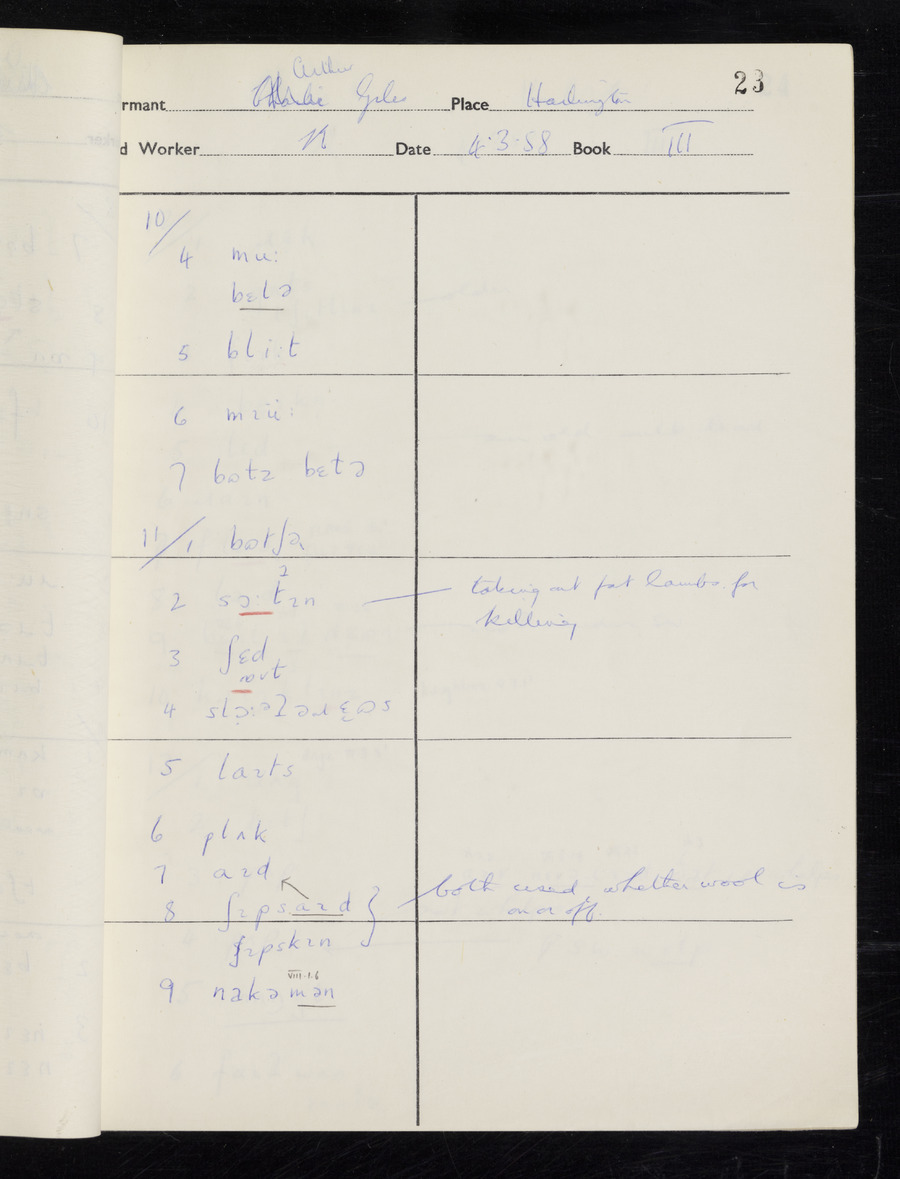 23
Arthur
rmant Charlie Giles Place Harlington
d Worker Date 4·3·58 Book III
10/
4 mu:
bɛlə
5 bli:t
6 mɪü:
7 bɷtɪ bɛtə
11/1 bɷtʃə
2 taking out fat lambs for
killing
3 ʃɛd
4
5 laɪts
6 plʌk
7 aɪd
8 ʃɪpsaɪd both used, whether wool is
on or off.
ʃɪpskɪn
VIII·1·6
9 nakəmən